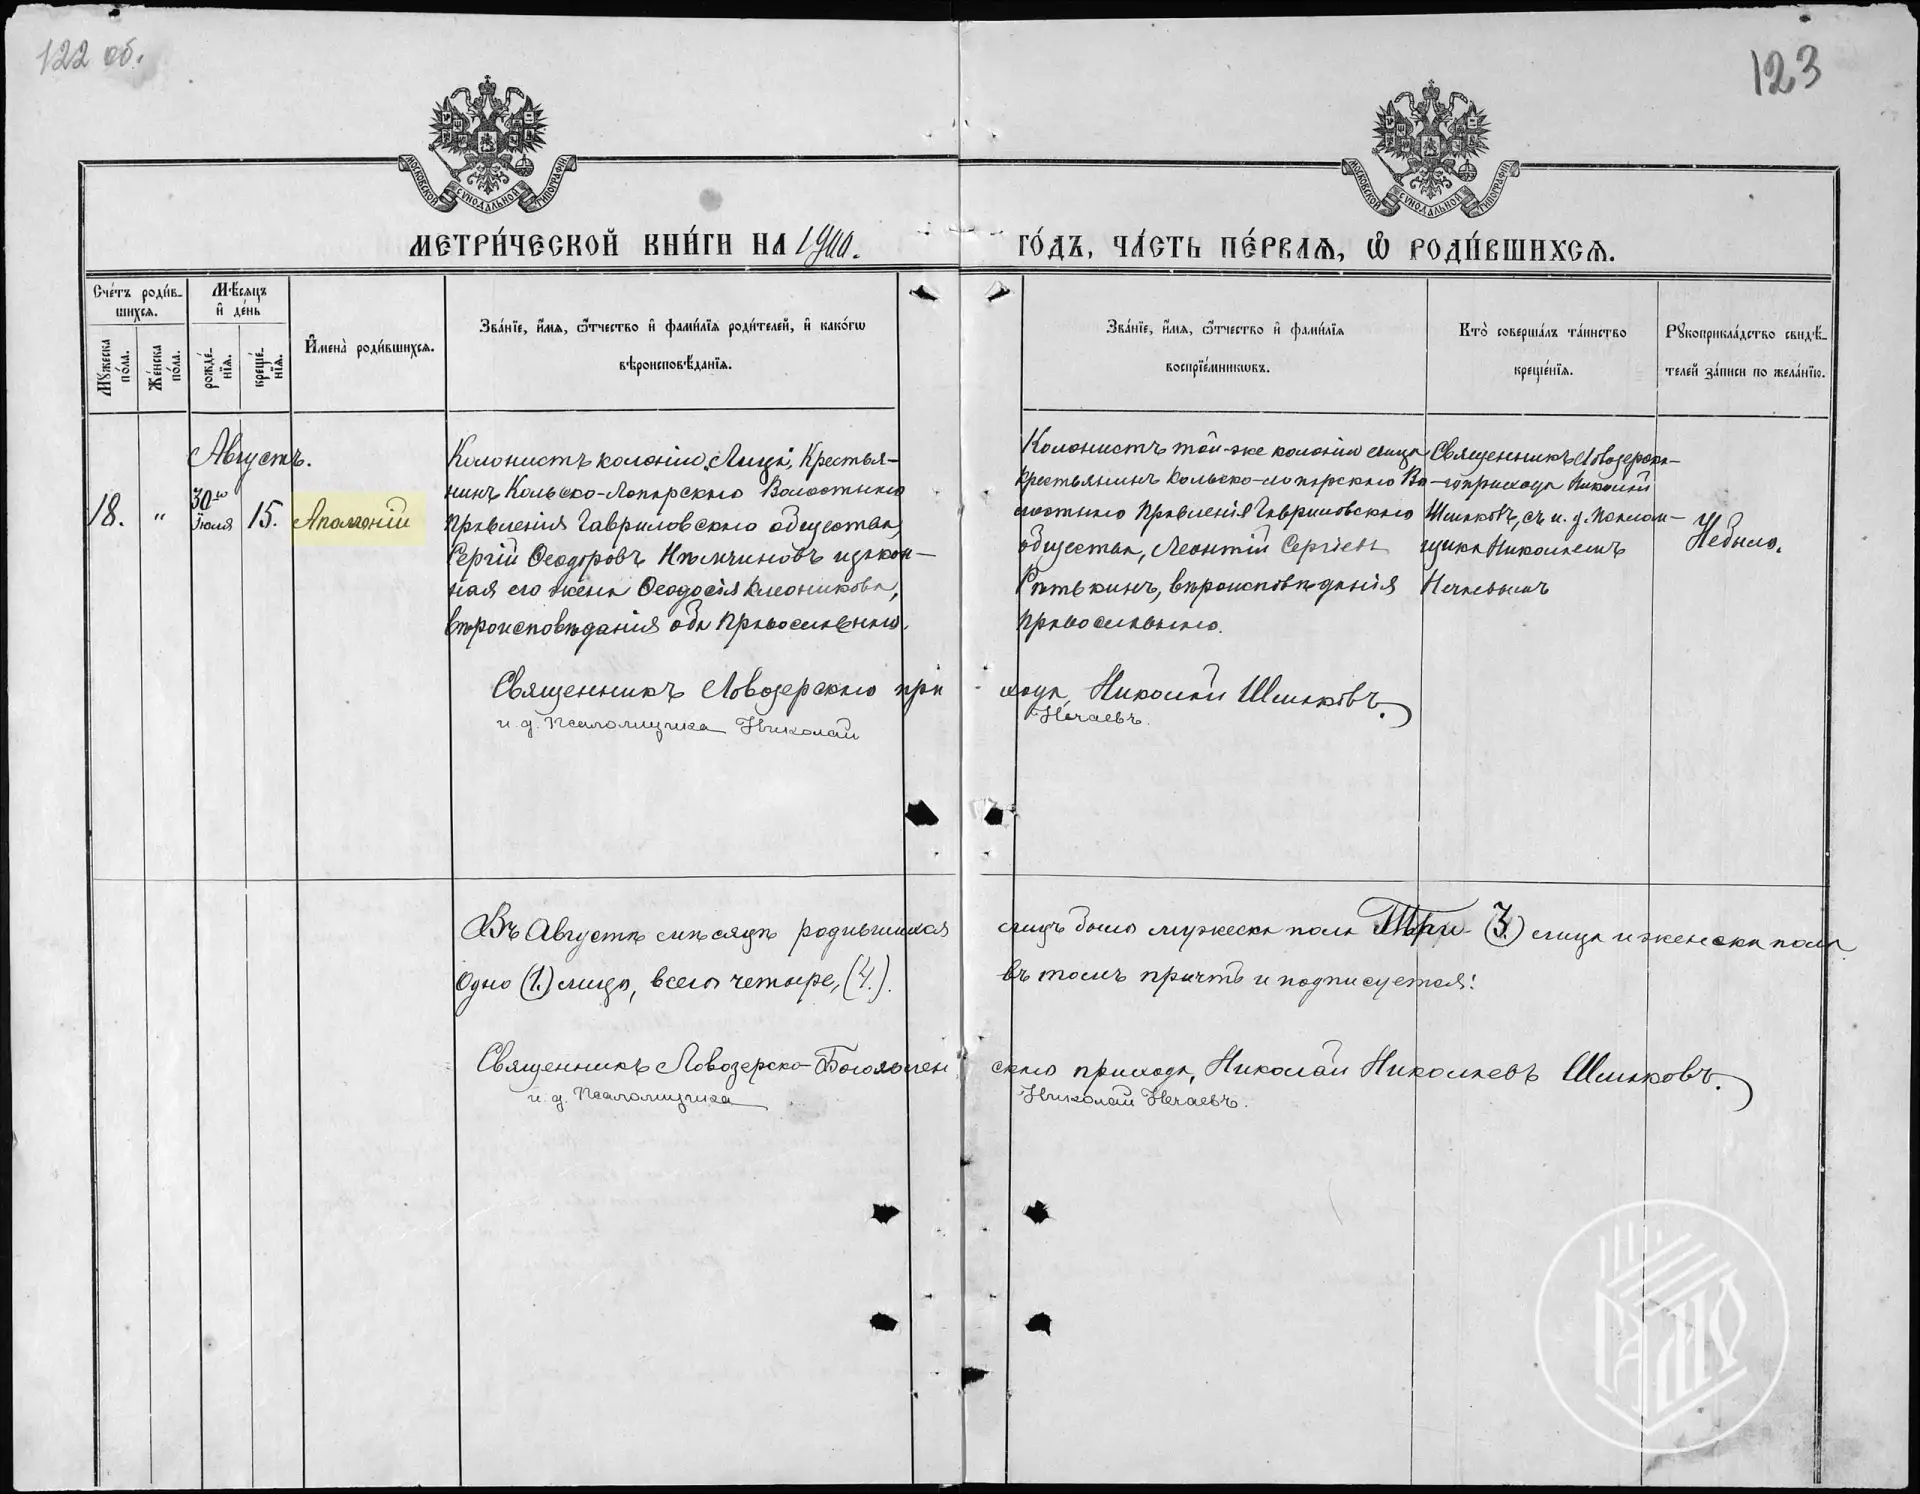 122 об.
123
МОСКОВСКОЙ СѴНОДАЛЬНОЙ ТИПОГРАФІИ
МОСКОВСКОЙ СѴНОДАЛЬНОЙ ТИПОГРАФІИ
МЕТРИ́ЧЕСКОЙ КНИ́ГИ НА 1900.
ГО́ДЪ, ЧА́СТЬ ПЕ́РВАЯ, Ѡ РОДИ́ВШИХСЯ.
Сче́тъ роди́в-
шихся.
Мѣсяцъ
и҆ де́нь
Мꙋжеска
по́ла.
Же́нска
по́ла.
рожде́-
нїя.
креще́-
нїя.
И҆мена̀ роди́вшихся.
Зва́нїе, и҆́мя, ѻ҆́тчество и҆ фами́лїя роди́телей, и҆ како́гѡ
вѣроисповѣ́данїя.
Зва́нїе, и҆́мя, ѻ҆́тчество и҆ фами́лїя
воспрїе́мникѡвъ.
Кто̀ соверша́лъ та́инство
креще́нїя.
Рꙋкоприкла́дство свидѣ́-
телей за́писи по жела́нїю.
Августъ.
18.
"
30го
Іюля
15.
Аполлоній
Колонистъ колоніи Лица, Крестья-
нинъ Кольско-Лопарскаго Волостнаго
Правленія Гавриловскаго общества,
Сергій Ѳеодоровъ Нѣмчиновъ и закон-
ная его жена Ѳеодосія Клеоникова,
вѣроисповѣданія оба Православнаго.
Колонистъ той-же колоніи Лица
крестьянинъ Кольско-Лопарскаго Во-
лостнаго Правленія Гавриловскаго
общества, Леонтій Сергіевъ
Рѣтькинъ, вѣроисповѣданія
православнаго.
Священникъ Ловозерска-
го прихода Николай
Шмаковъ, съ и. д. Псалом-
щика Николаемъ
Нечаевымъ
Небыло.
Священникъ Ловозерскаго при
хода, Николай Шмаковъ.
и. д. Псаломщика Николай
Нечаевъ.
Въ Августѣ мѣсяцѣ родившихся
лицъ было мужеска пола Три (3.) лица и женска пола
одно (1.) лицо, всего четыре, (4.).
въ томъ причтъ и подписуется:
Священникъ Ловозерско-Богоявлен
скаго прихода, Николай Николаевъ Шмаковъ.
и. д. Псаломщика
Николай Нечаевъ.